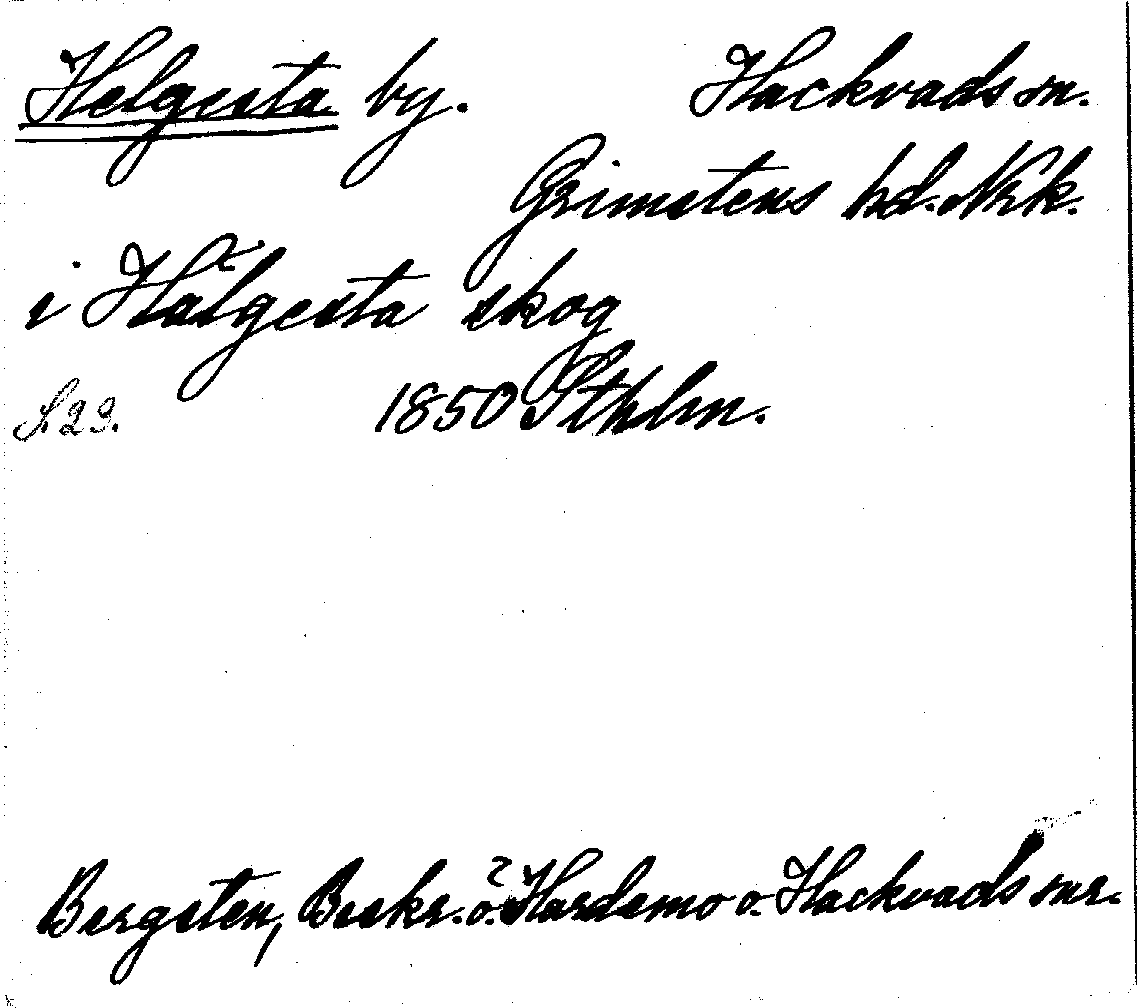 Helgesta by. Hackvads sn.
Grimstens hd. Nrk.
i Hälgesta skog
S. 29. 1850 Sthlm.
Bergsten, Beskr. ö. Hardemo o. Hackvads snr.